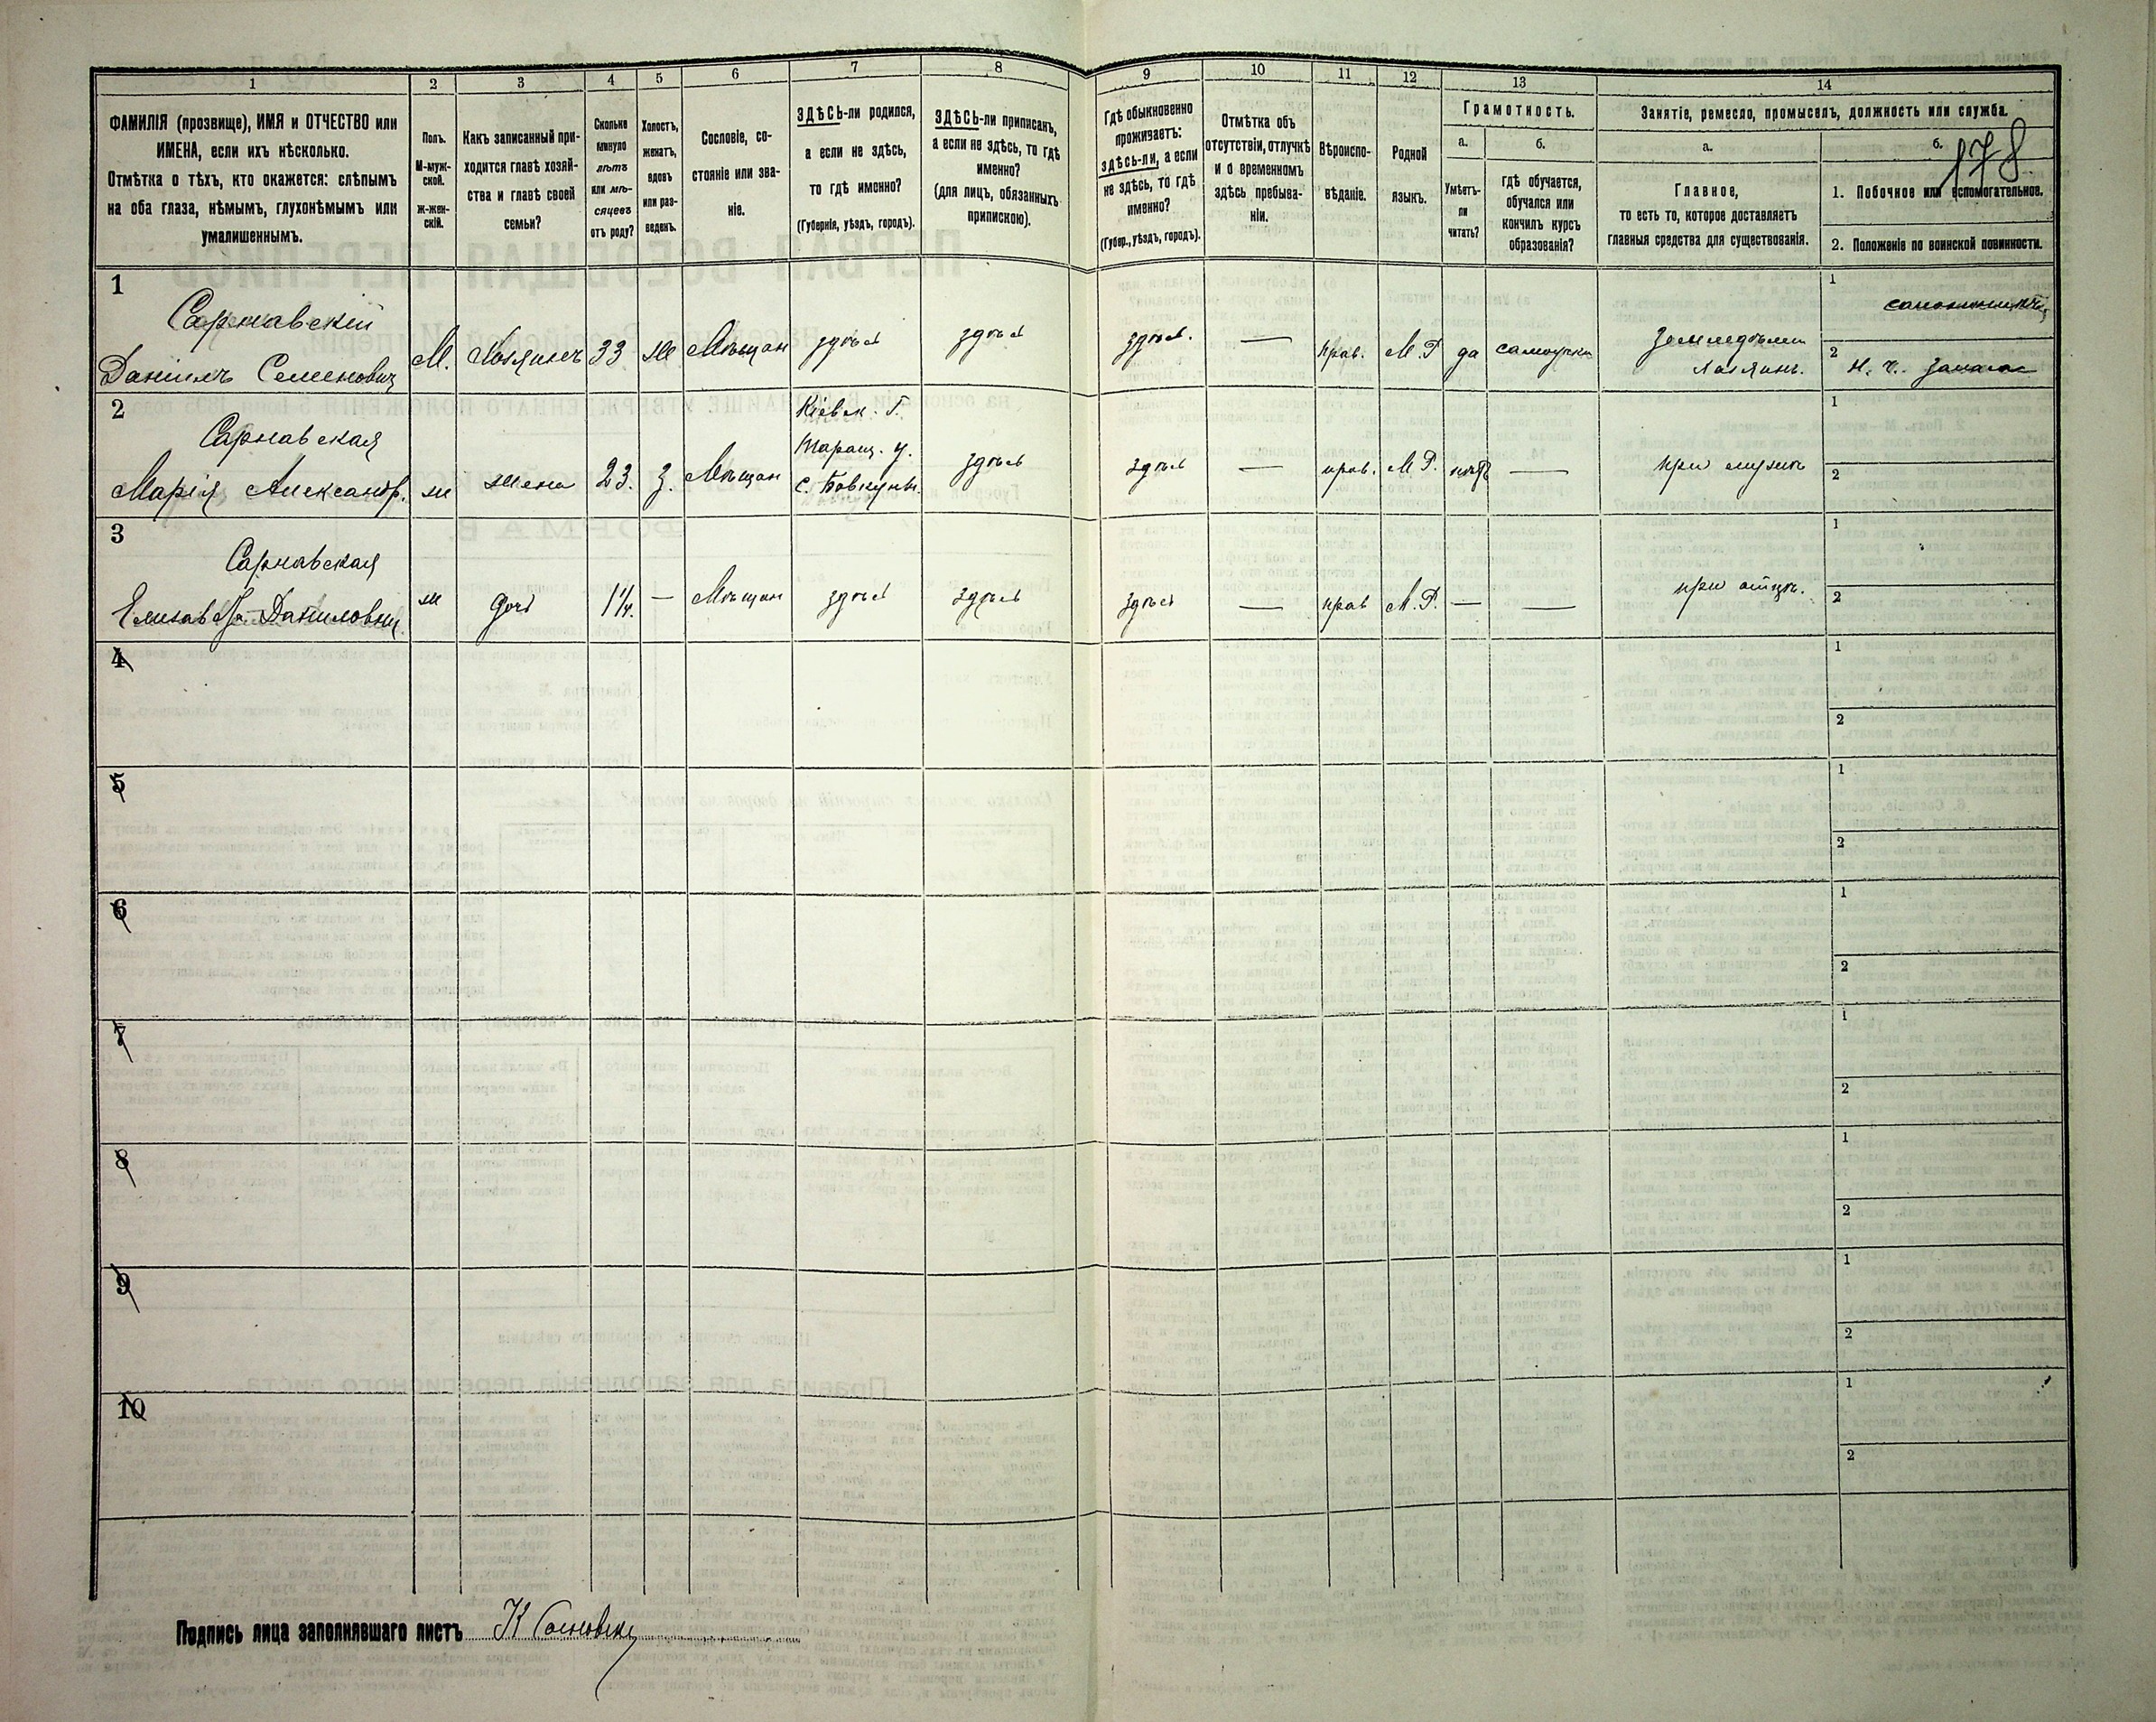 178
1
2
3
4
5
6
7
8
9
10
11
12
13
14
ФАМИЛІЯ (прозвище), ИМЯ и ОТЧЕСТВО или
ИМЕНА, если ихъ нѣсколько.
Отмѣтка о тѣхъ, кто окажется: слѣпымъ
на оба глаза, нѣмымъ, глухонѣмымъ или
умалишеннымъ.
Полъ.
М-муж-
ской.
ж-жен-
скій.
Какъ записанный при-
ходится главѣ хозяй-
ства и главѣ своей
семьи?
Сколько
минуло
лѣтъ
или мѣ-
сяцевъ
отъ роду?
Холостъ,
женатъ,
вдовъ
или раз-
веденъ.
Сословіе, со-
стояніе или зва-
ніе.
ЗДѢСЬ-ли родился,
а если не здѣсь,
то гдѣ именно?
(Губернія, уѣздъ, городъ).
ЗДѢСЬ-ли приписанъ,
а если не здѣсь, то гдѣ
именно?
(для лицъ, обязанныхъ
припискою).
Гдѣ обыкновенно
проживаетъ:
ЗДѢСЬ-ли, а если
не здѣсь, то гдѣ
именно?
(Губер., уѣздъ, городъ).
Отмѣтка объ
отсутствіи, отлучкѣ
и о временномъ
здѣсь пребыва-
ніи.
Вѣроиспо-
вѣданіе.
Родной
языкъ.
Грамотность.
а.
Умѣетъ-
ли
читать?
б.
гдѣ обучается,
обучался или
кончилъ курсъ
образованія?
Занятіе, ремесло, промыселъ, должность или служба.
а.
Главное,
то есть то, которое доставляетъ
главныя средства для существованія.
б.
1. Побочное или вспомогательное.
2. Положеніе по воинской повинности.
1
Сарнавскій
Даніилъ Семеновичъ
М.
Хозяинъ
33
ж
Мѣщан
здѣсь
здѣсь
здѣсь.
—
прав.
М. Р.
да
самоучки
Земледѣлец
хозяинъ.
1
2 Н. ч. запаса
2
Сарнавская
Марія Александр.
ж
жена
23.
З.
Мѣщан
Кіевск. Г.
Таращ. у.
с. Бовкуны.
здѣсь
здѣсь
—
прав.
М. Р.
нѣтъ
—
при мужѣ
1
2
3
Сарнавская
Елизавета Даниловна
ж
дочь
1 1/4.
—
Мѣщан
здѣсь
здѣсь
здѣсь
—
прав
М. Р.
—
—
при отцѣ.
1
2
4
1
2
5
1
2
6
1
2
7
1
2
8
1
2
9
1
2
10
1
2
Подпись лица заполнявшаго листъ